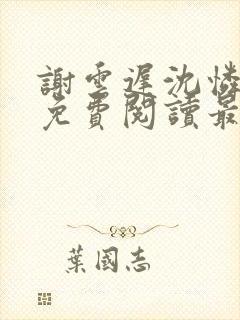 謝雲遲沈憐
免費閱讀最
葉國志